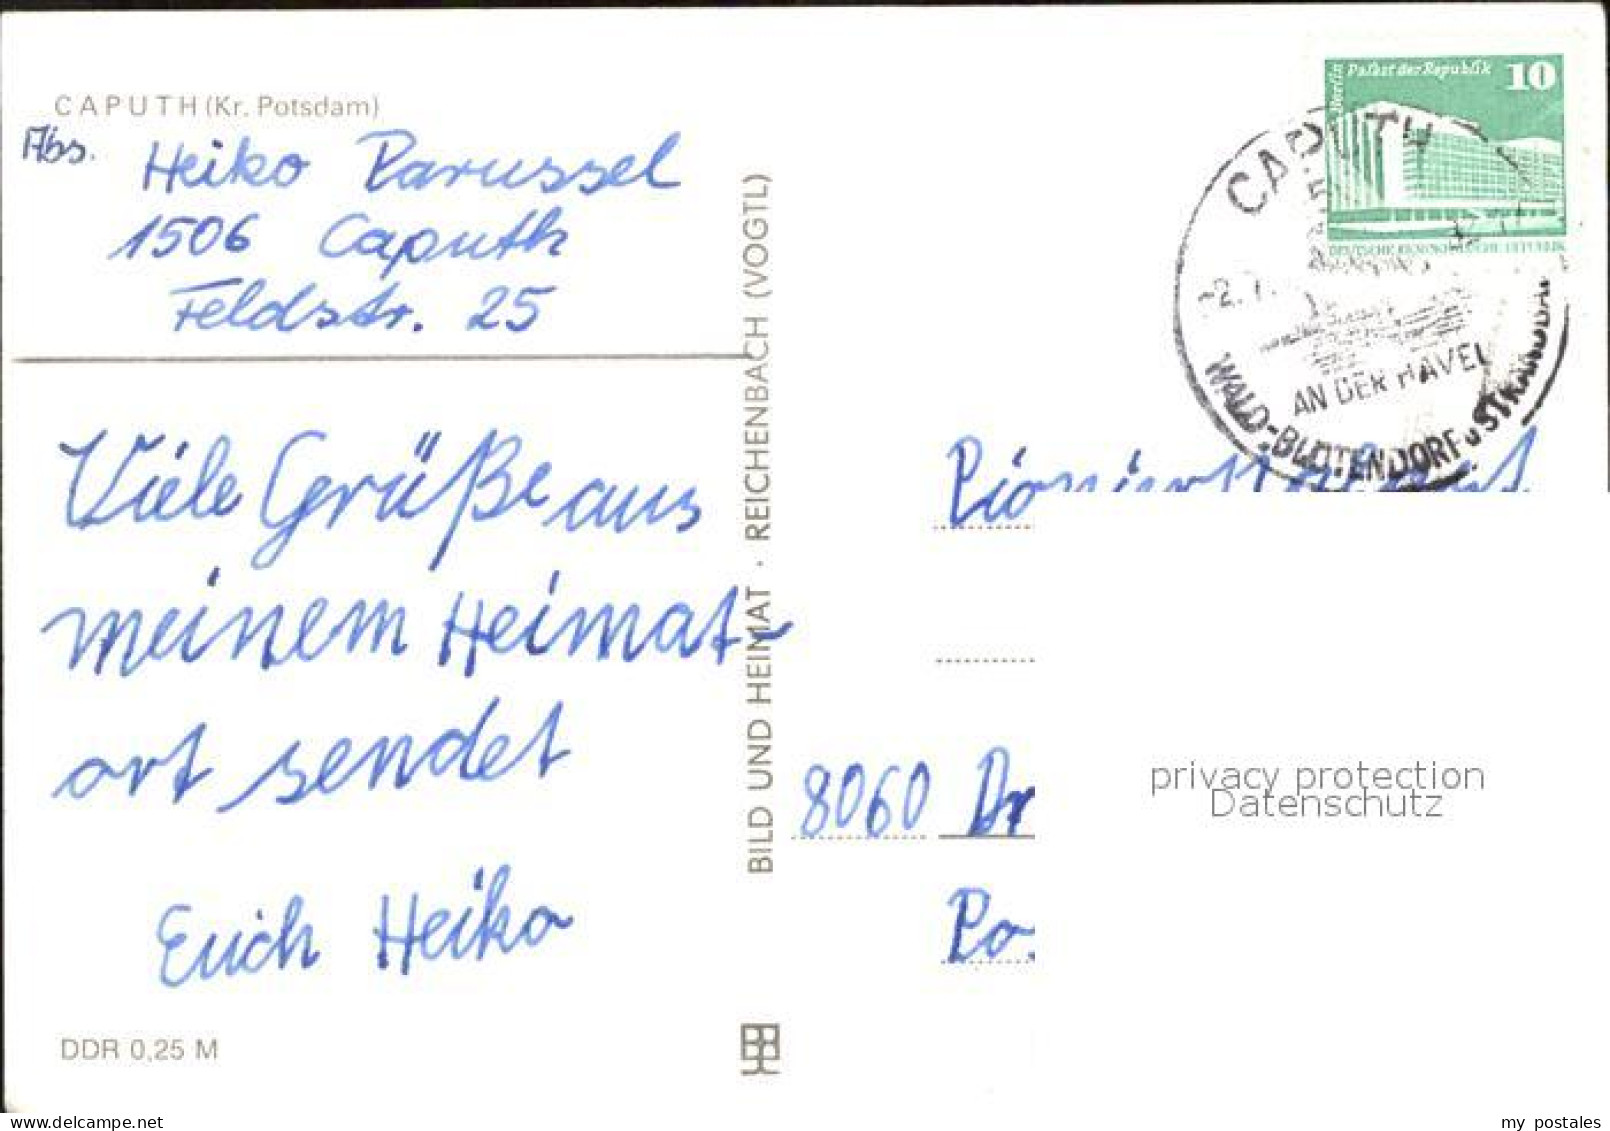 CAPUTH (Kr. Potsdam)
Abs. Heiko Parussel
1506 Caputh
Feldstr. 25
Viele Grüße aus
meinem Heimat-
ort sendet
Euch Heiko
DDR 0,25 M
BILD UND HEIMAT · REICHENBACH (VOGTL)
Berlin Palast der Republik 10
DEUTSCHE DEMOKRATISCHE REPUBLIK
CAPUTH
-2.7.
AN DER HAVEL
WALD-BLÜTENDORF u. STRANDBA
8060 Dr
Po.
privacy protection
Datenschutz
Viele weitere Karten unter www.ansichtskartenhandel.de
my postales